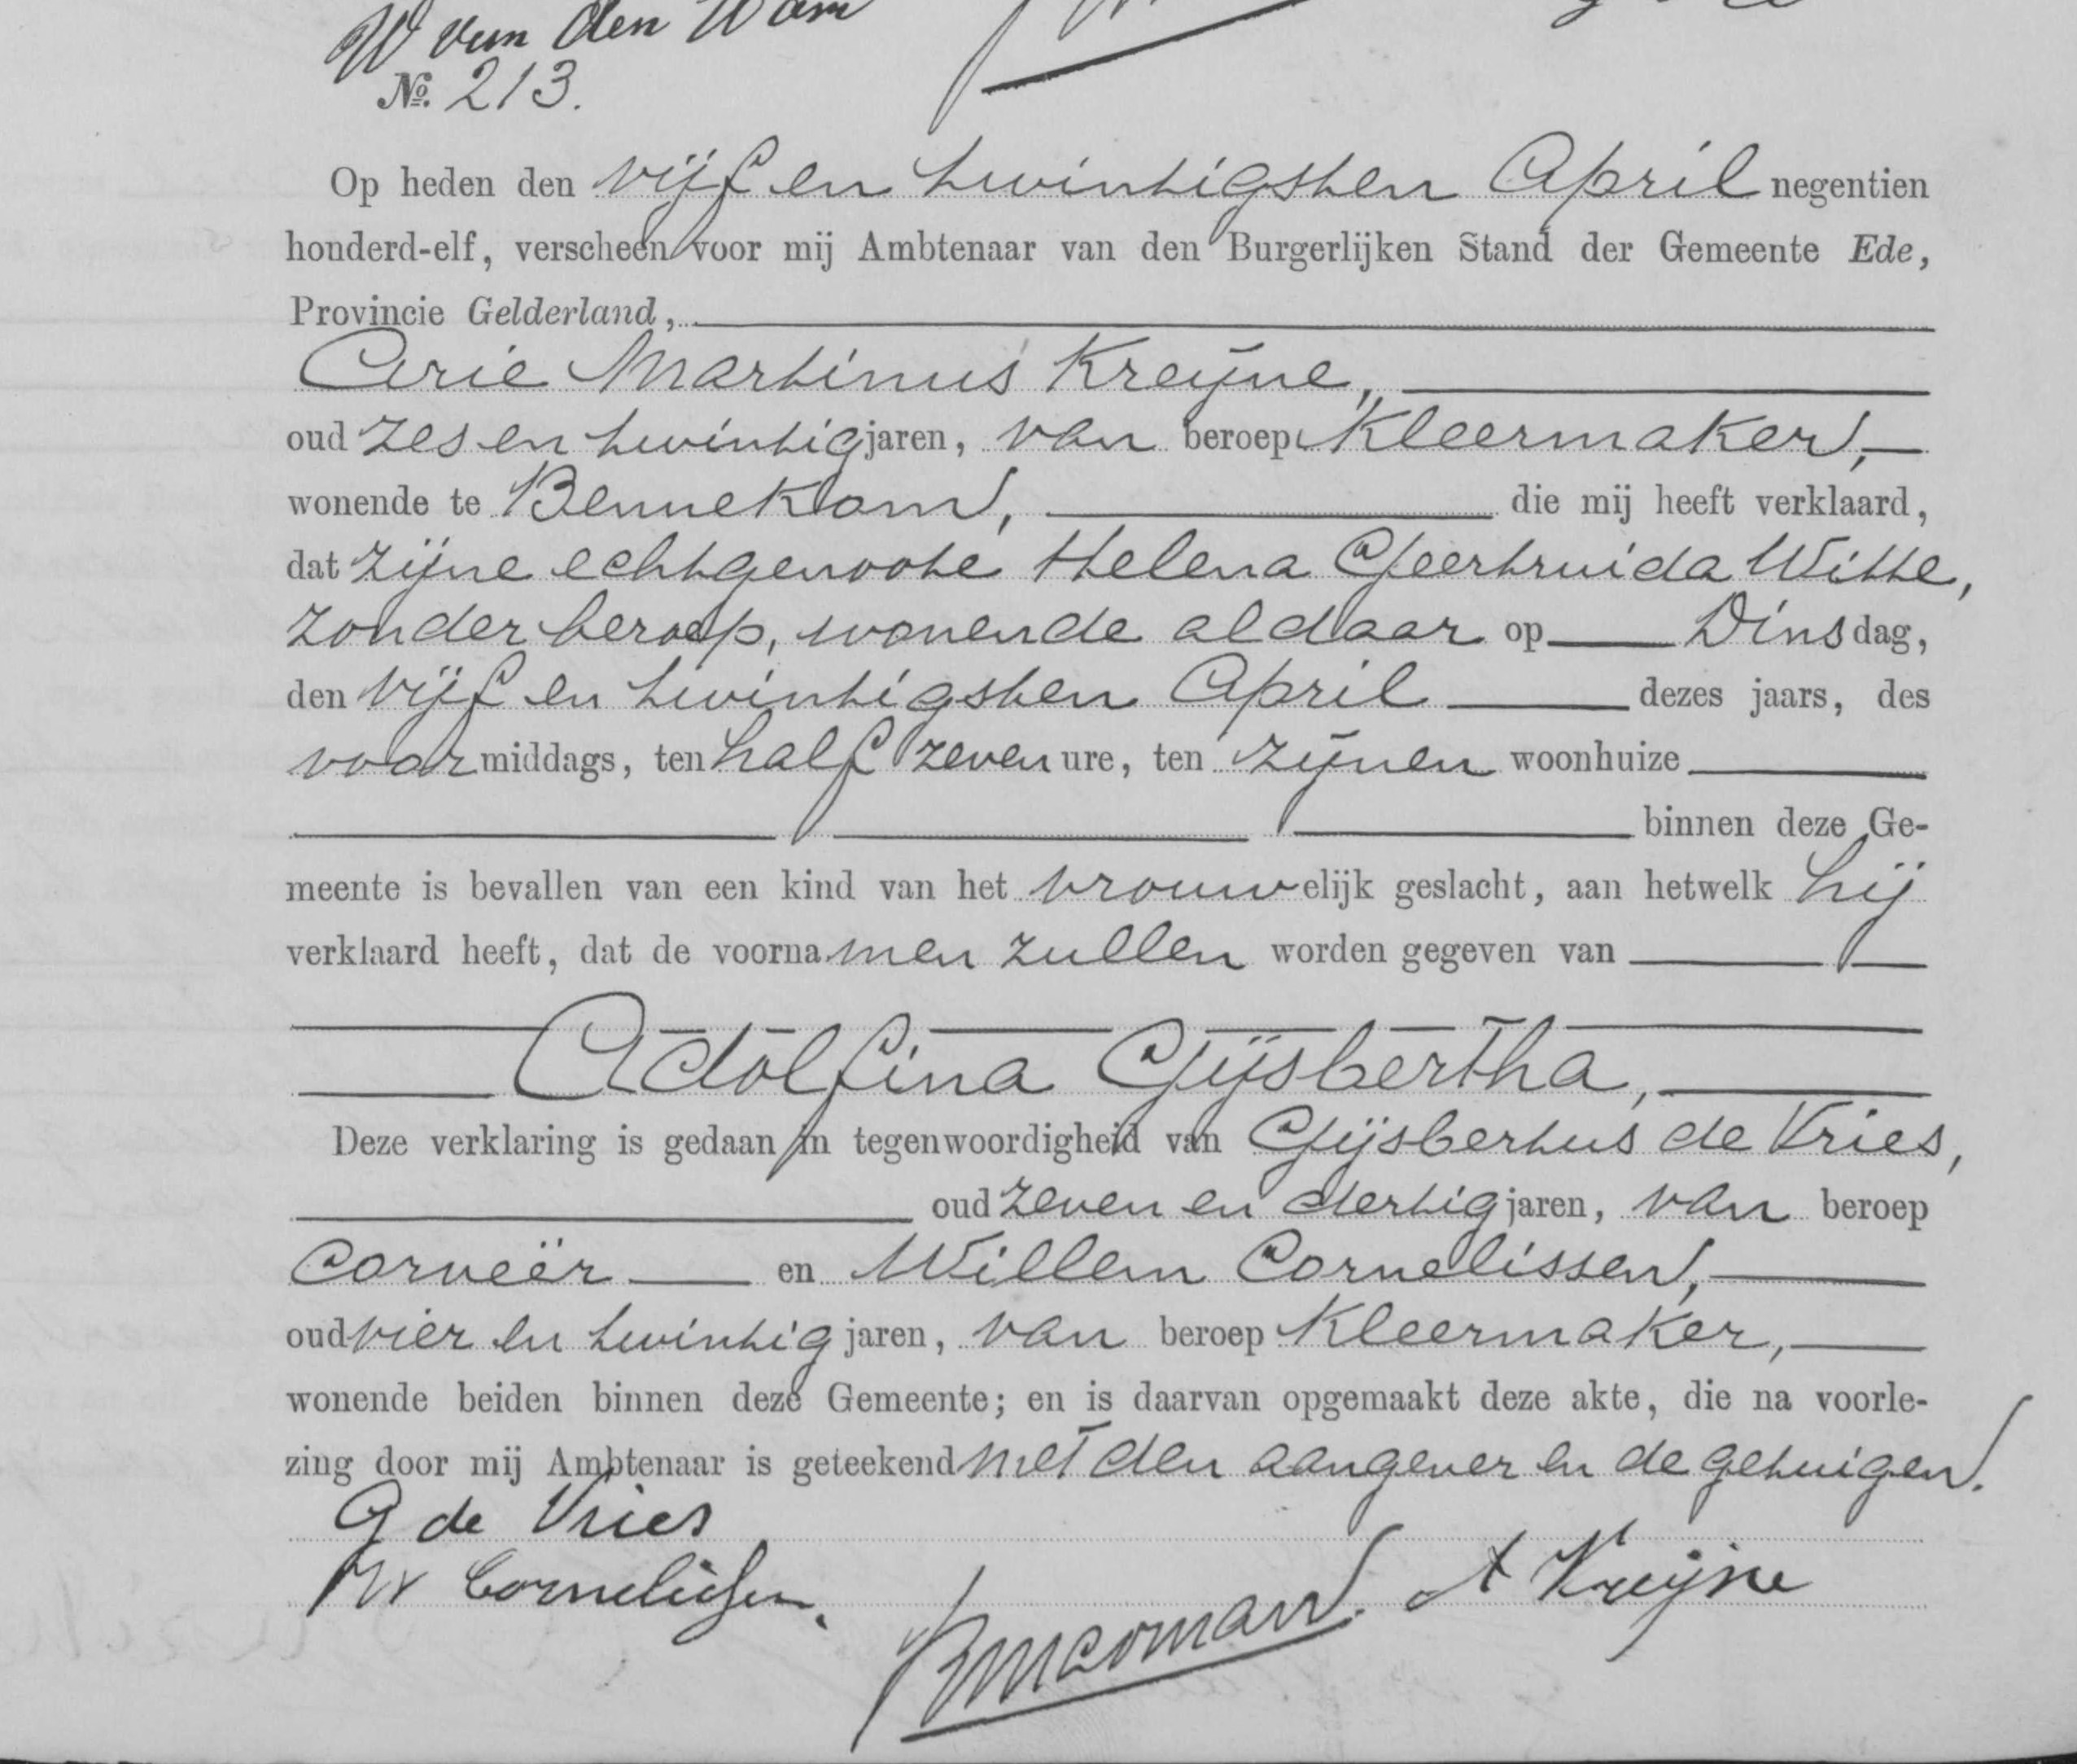 W van den Ham
No. 213.
Op heden den vijf en twintigsten April negentien
honderd-elf, verscheen voor mij Ambtenaar van den Burgerlijken Stand der Gemeente Ede,
Provincie Gelderland,
Arie Martinus Kreijne,
oud zes en twintig jaren, van beroep Kleermaker,
wonende te Bennekom, die mij heeft verklaard,
dat zijne echtgenoote Helena Geertruida Witte,
zonder beroep, wonende aldaar op Dinsdag,
den vijf en twintigsten April dezes jaars, des
voormiddags, ten half zeven ure, ten zijnen woonhuize
binnen deze Ge-
meente is bevallen van een kind van het vrouwelijk geslacht, aan hetwelk hij
verklaard heeft, dat de voornamen zullen worden gegeven van
Adolfina Gijsbertha,
Deze verklaring is gedaan in tegenwoordigheid van Gijsbertus de Vries,
oud zeven en dertig jaren, van beroep
Corveër en Willem Cornelissen,
oud vier en twintig jaren, van beroep Kleermaker,
wonende beiden binnen deze Gemeente; en is daarvan opgemaakt deze akte, die na voorle-
zing door mij Ambtenaar is geteekend met den aangever en de getuigen.
G de Vries
W Cornelissen.
A Kreijne